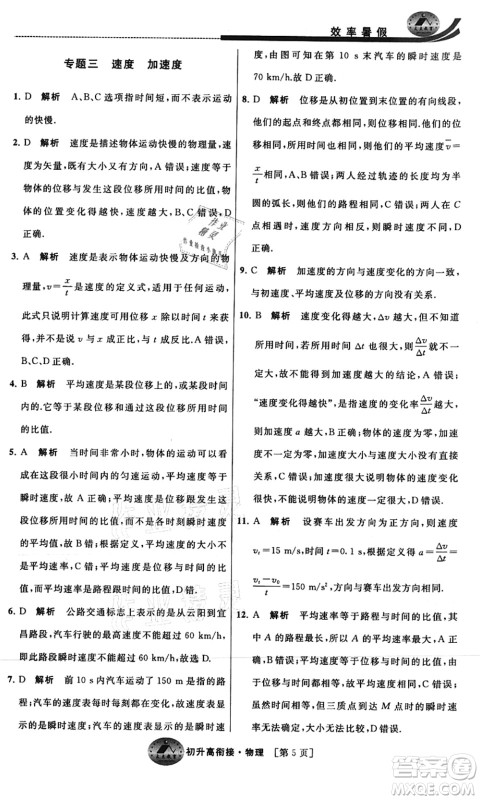 效率暑假
专题三 速度 加速度
1. D 解析 A、B、C选项指时间短,而不表示运动
的快慢.
2. D 解析 速度是描述物体运动快慢的物理量,速
度为矢量,既有大小又有方向,A错误;速度等于
物体的位移与发生这段位移所用时间的比值,物
体的位置变化得越快,速度越大,B、C错误,D
正确.
3. A 解析 速度是表示物体运动快慢及方向的物理
量,v=x/t是速度的定义式,适于任何运动,
此式只说明计算速度可用位移x除以时间t来获
得,并不是v与x成正比,与t成反比.故A正确,
B、C、D错误.
4. B 解析 平均速度是某段位移上的,或某段时间
内的速度,它大小等于某段位移与该段位移所用时间
的比值.
5. A 解析 当时间非常小时,物体的运动可以看
成在这段很小时间内的匀速运动,此时平均速度等于
瞬时速度,故A正确;平均速度是某段位移跟发
生这段位移所用时间的比值,而速率是瞬时速度
的大小,所以B、C错误;平均速率不是平均速度
的大小,平均速率是路程跟时间的比值,D错误.
6. D 解析 公路交通标志上表示的是从云阳到宜
昌路段,汽车行驶的最高速度不能超过60 km/h,
此路段瞬时速度不能超过60 km/h,故选D.
7. D 解析 前10 s内汽车运动了150 m是指的是
路程;汽车的速度表每时每刻都在变化,表示的是
瞬时速度,不是平均速度;汽车速度表显示的是速
度,由图可知在第10 s末汽车的瞬时速度是
70 km/h.故D正确.
8. D 解析 位移是从初位置到末位置的有向线段,
他们的起点和终点都分别相同,他们的位移相同,
所用的时间不同,由平均速度的公式v=
x/t可知,A、B错误;两人经过轨迹的长度不同,
所以路程不同,C错误;两人的路程不同,在C
点相遇时,速度方向不相同,瞬时速度不同.故D
正确.
9. C 解析 加速度的方向与速度变化的方向一致,
与初速度、末速度的方向均无关.
10. B 解析 速度变化得越大,Δv越大,但若所用
时间Δt也越大,则Δv/Δt就不一定大,故不能得出
加速度就一定越大的结论,A错误;
“速度变化得越快”是指速度的变化率Δv/Δt越大,
即加速度a越大,B正确;加速度方向保持不变,
速度方向可能变,也可能不变,当物体做减速直
线运动时,v=0以后就可能反向运动,故C错
误;物体在某时刻速度为零,但速度的变化率
不一定为零,例如:物体的速度为零,加速度也
为零,则物体处于静止状态,若物体速度为零,
但加速度不为零,则物体由静止开始运动,所以
加速度a越大,只能说明物体的速度变化得越
快,不能说明物体的速度变化得越大,D错误.
11. A 解析 设赛车出发方向为正方向,v₀=0,
vₜ=15 m/s,时间t=0.1 s,根据公式a=Δv/Δt=
(vₜ-v₀)/t=150 m/s²,与赛车出发方向相同.
12. A 解析 平均速率等于路程与时间的比值,由
图知:a的路程最大,b的路程最小,由于时间相
同,因此a的平均速率最大,b的平均速率最小,
故A正确,B错误;三质点同时到达M点时的速
度大小无法确定,故C、D错误.
初升高衔接·物理 [第5页]